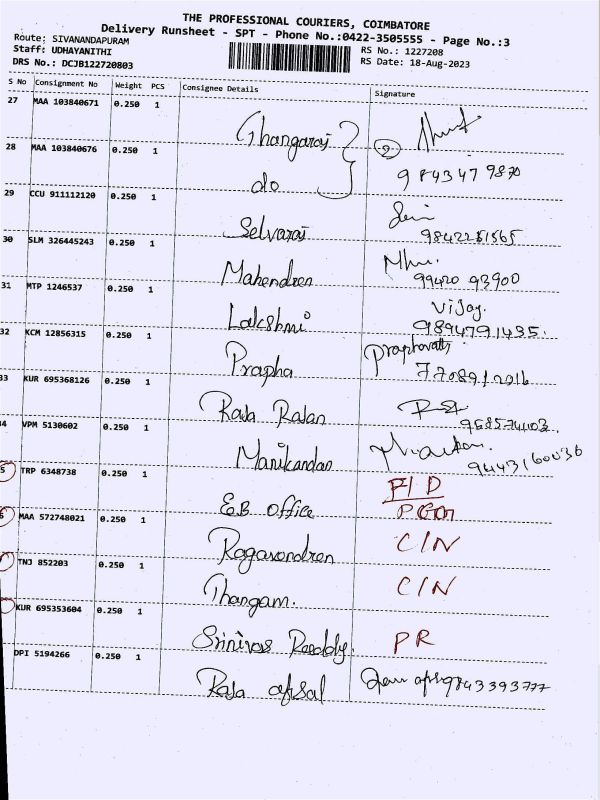 THE PROFESSIONAL COURIERS, COIMBATORE
Delivery Runsheet - SPT - Phone No.:0422-3505555 - Page No.:3
Route: SIVANANDAPURAM
RS No.: 1227208
Staff: UDHAYANITHI
RS Date: 18-Aug-2023
DRS No.: DCJB122720803
S No Consignment No Weight PCS Consignee Details Signature
27 MAA 103840671 0.250 1 Thangaraj
28 MAA 103840676 0.250 1 do 984347 9870
29 CCU 911112120 0.250 1 Selvaraj
30 SLM 326445243 0.250 1 Mahendren 99420 93900
31 MTP 1246537 0.250 1 Lakshmi Vijay. 9894791435.
32 KCM 12856315 0.250 1 Prapha
33 KUR 695368126 0.250 1 Raja Rajan
34 VPM 5130602 0.250 1 Manikandan 9443160036
5 TRP 6348738 0.250 1 E.B office
6 MAA 572748021 0.250 1 Ragavendren C/N
TNJ 852203 0.250 1 Thangam. C/N
KUR 695353604 0.250 1 Srinivas Reeddy. PR
DPI 5194266 0.250 1 Raja afsal 9843393777